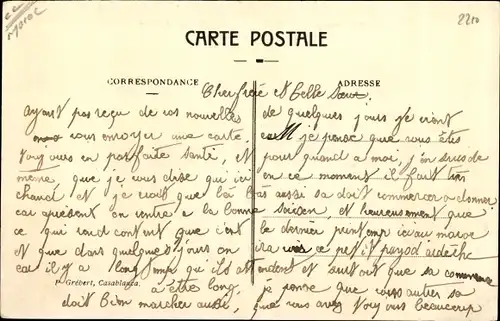 Maroc
2210
CARTE POSTALE
CORRESPONDANCE
ADRESSE
Cher frère et Belle Sœur.
Ayant pas reçu de vos nouvelles
vous envoyer une carte
toujours en parfaite santé, et
même que je vous dise qui ici
chaud et je crois que là bas
car aprèsent on rentre a la bonne
ce qui rend content que c'est
et que dans quelques jours on
car il y a longtemp qu'ils attendent
a être long,
doit bien marcher aussi,
de quelques jours je vient
je pense que vous êtes
pour quand a moi, j'en suis de
en ce moment il fait très
aussi sa doit commencer a donner
saison, et heureusement que
le dernier printemp ici au maroc
ira voir ce petit payod ardèche
et surtout que sa commence
je pense que vous autres sa
que vous avez toujours beaucoup
P. Grébert, Casablanca.